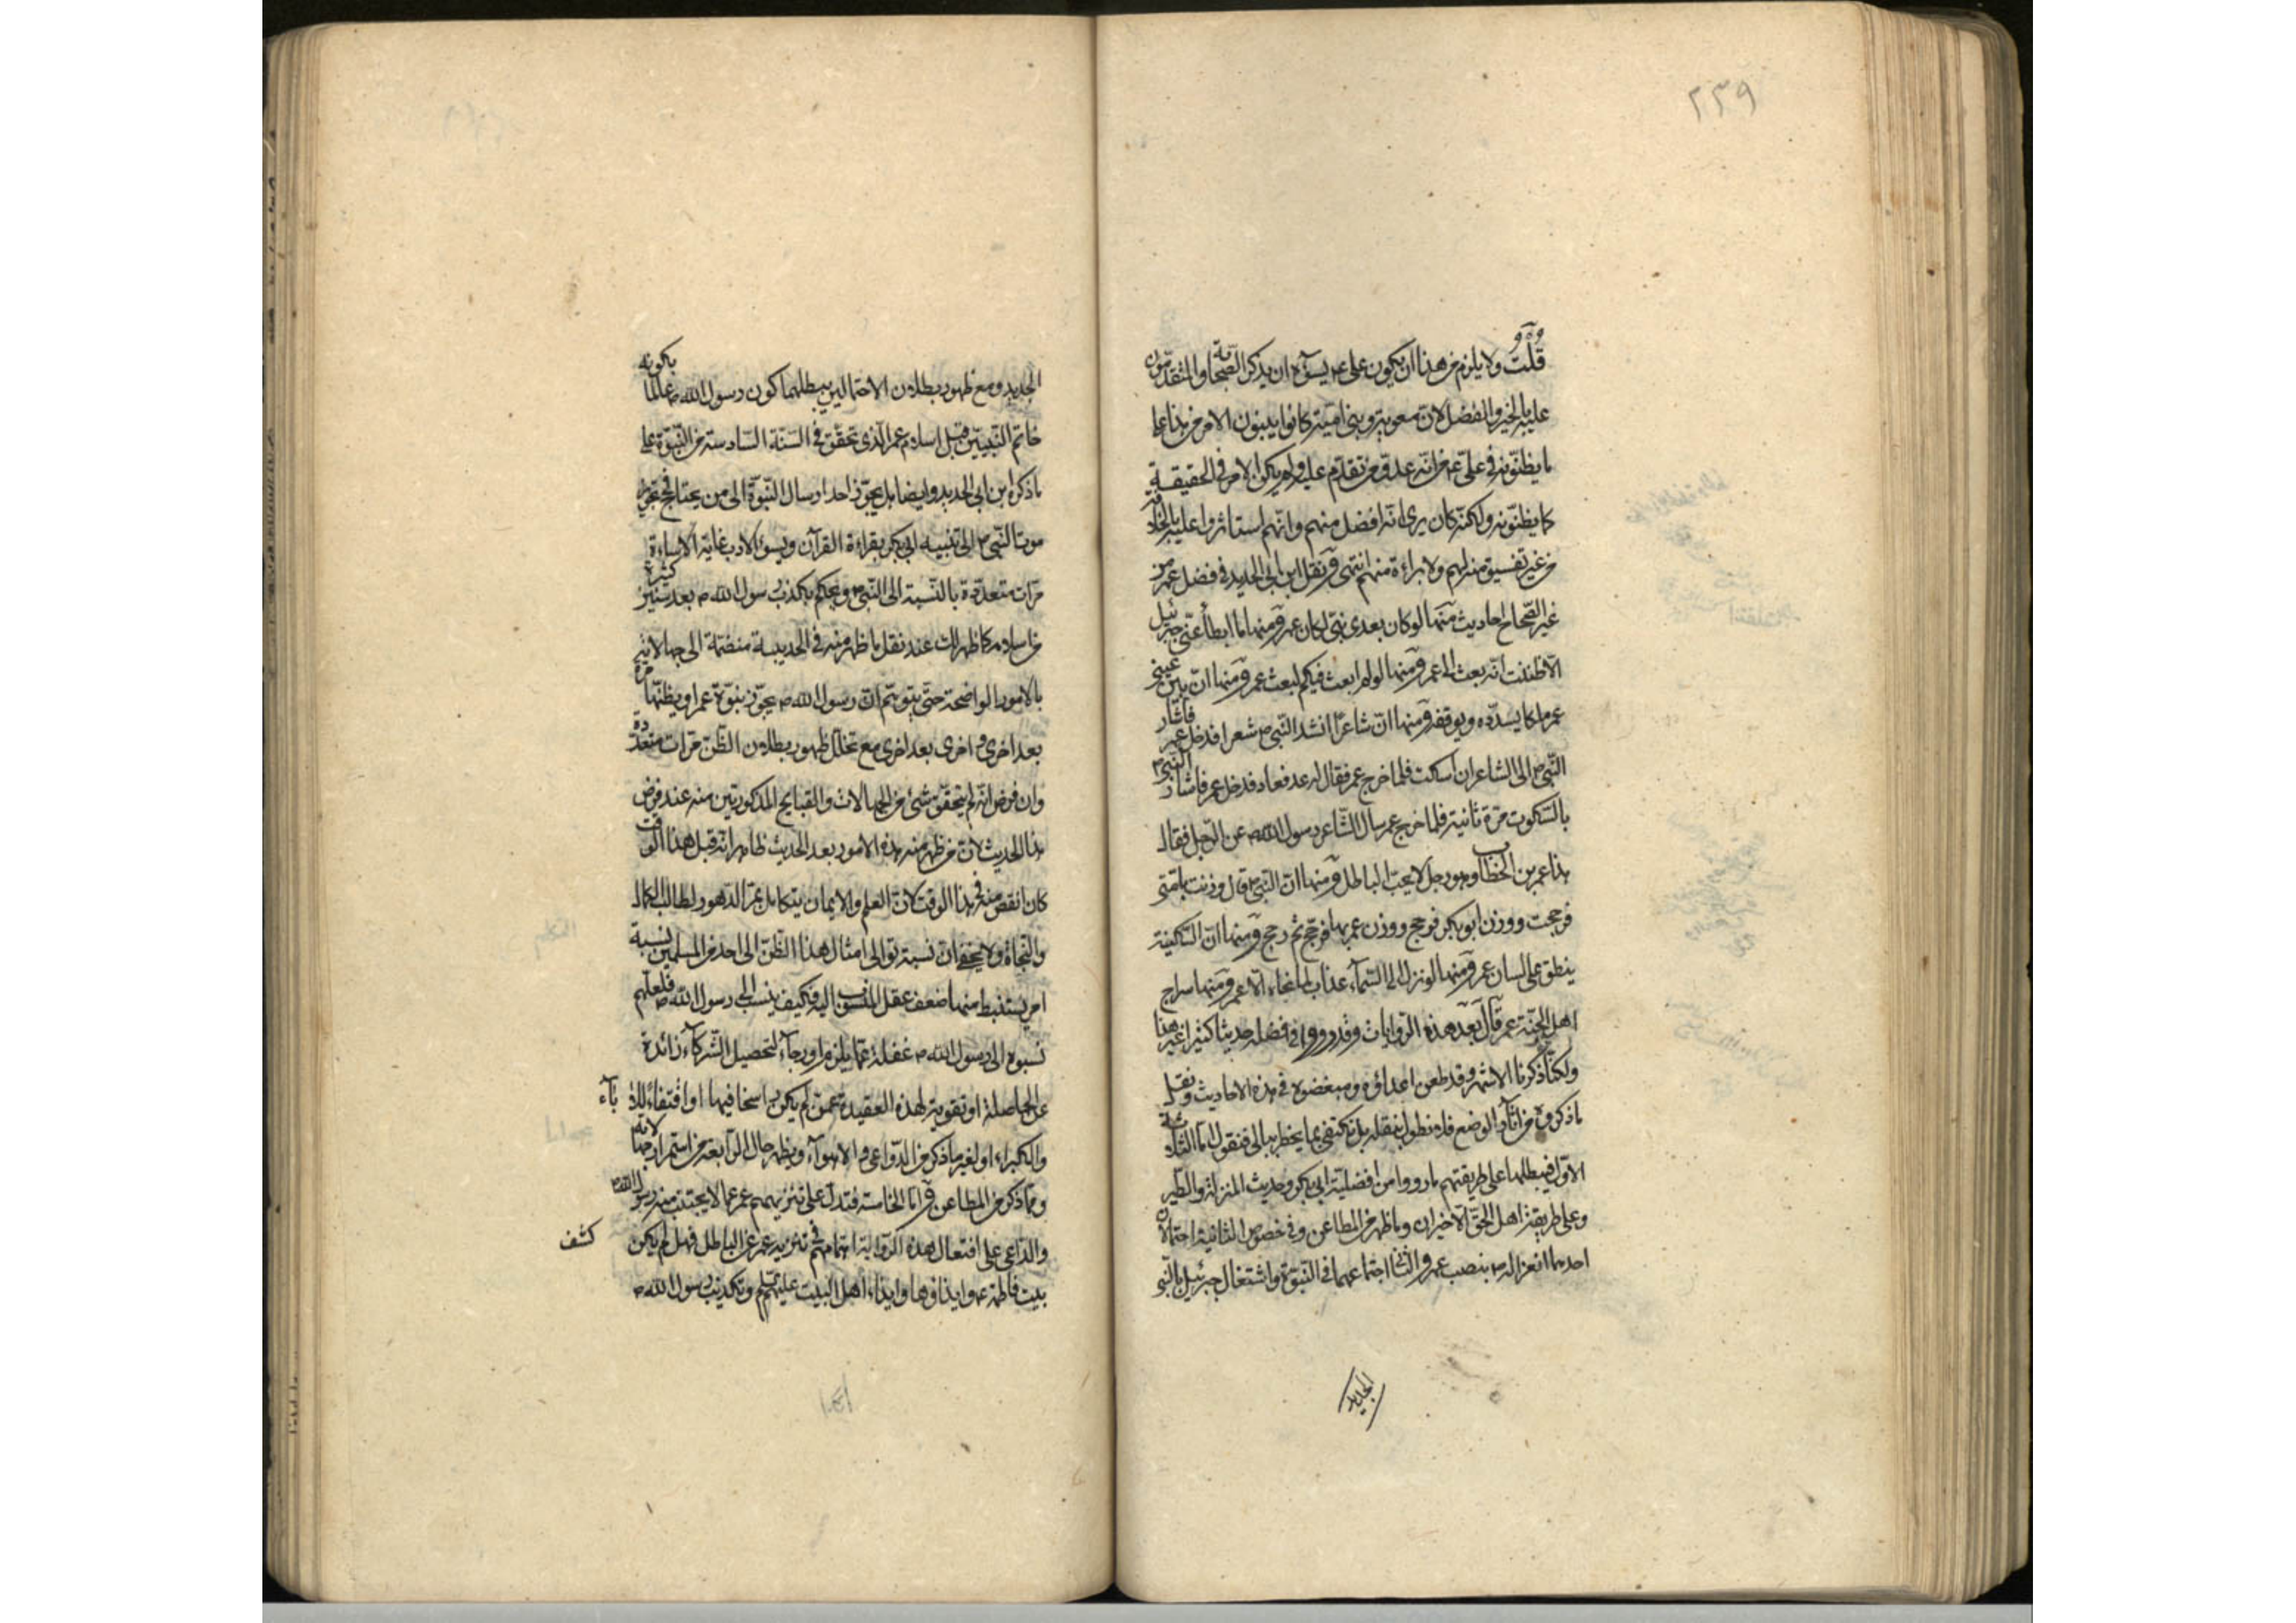 ٢٣٩
قلت ولا يلزم من هذا ان يكون على ع يسوءه ان يذكر الصحابة والمتقدمون
عليه بالخير والفضل لان معوية وبنى امية كانوا يبنون الامر من هذا على
ما يظنونه فى على ع من انه عدو من تقدم عليه ولم يكن الامر فى الحقيقة
كما يظنونه ولكنه كان يرى انه افضل منهم وانهم استاثروا عليه بالخلافة
من غير تفسيق منه لهم ولا براءة منهم انتهى ونقل ابن ابى الحديد فى فضل عمر من
غير الصحاح احاديث منها لو كان بعدى نبى لكان عمر ومنها ما ابطأ عنى جبرئيل
الا ظننت انه بعث الى عمر ومنها لو لم ابعث فيكم لبعث عمر ومنها ان بين عينى
عمر ملكا يسدده ويوفقه ومنها ان شاعرا انشد النبى ص شعرا فدخل عمر فاشار
النبى ص الى الشاعر ان اسكت فلما خرج عمر فقال له عد فعاد فدخل عمر فاشار النبى ص
بالسكوت مرة ثانية فلما خرج عمر سال الشاعر رسول الله ص عن الرجل فقال
هذا عمر بن الخطاب وهو رجل لا يحب الباطل ومنها ان النبى ص قال وزنت بامتى
فرجحت ووزن ابو بكر فرجح ووزن عمر بها فرجح ثم رجح ومنها ان السكينة
ينطق على لسان عمر ومنها لو نزل الى السماء عذاب لما نجا الا عمر ومنها سراج
اهل الجنة عمر قال بعد هذه الروايات وقد رووا فى فضله حديثا كثيرا غير هذا
ولكنا ذكرنا الاشهر وقد طعن اعداؤه ومبغضوه فى هذه الاحاديث ونقل
ما ذكروه من آثار الوضع فلا نطول بنقله بل نكتفى بما يخطر ببالى فنقول اما الثلاثة
الاول فيبطلها على طريقتهم ما رووا من افضلية ابى بكر وحديث المنزلة والطير
وعلى طريقة اهل الحق الاخيران وما ظهر من المطاعن وفى خصوص الثانية احتمالان
احدهما انعزاله ص بنصب عمر والثانى اجتماعهما فى النبوة واشتغال جبرئيل بالنبى
الجديد
الجديد ومع ظهور بطلان الاحتمالين يبطلهما كون رسول الله ص عالما بكونه
خاتم النبيين قبل اسلام عمر الذى تحقق فى السنة السادسة من النبوة على
ما ذكره ابن ابى الحديد وايضا هل يجوز احد ارسال النبوة الى من يحتاج فى تجويز
موت النبى ص الى تنبيه ابى بكر بقراءة القرآن ويسئ الادب غاية الاساءة
مرات متعددة بالنسبة الى النبى ص ويحكم بكذب رسول الله ص بعد سنين كثيرة
من اسلامه كما ظهر لك عند نقل ما ظهر منه فى الحديبية منضمة الى جهالاته
بالامور الواضحة حتى يتوهم ان رسول الله ص يجوز نبوة عمر او يظنها مرة
بعد اخرى واخرى بعد اخرى مع تخلل ظهور بطلان الظن مرات متعددة
وان فرض انه لم يتحقق شئ من الجهالات والقبايح المذكورتين منه عند فرض
هذا الحديث لان من ظهر منه هذه الامور بعد الحديث ظاهر انه قبل هذا الوقت
كان انقص منه فى هذا الوقت لان العلم والايمان يتكامل بمر الدهور لطالب الكمال
والنجاة ولا يخفى ان نسبة توالى امثال هذا الظن الى احد من المسلمين نسبة
امر يستنبط منها ضعف عقل المنسوب اليه فكيف ينسب الى رسول الله ص فلعلهم
نسبوه الى رسول الله ص غفلة عما يلزم او رجاء لتحصيل الشركاء زائدة
عن الحاصلة او تقوية لهذه العقيدة عمن لم يكن راسخا فيها او اقتفاء للآباء
والكبراء او لغير ما ذكر من الدواعى والاهواء ويظهر حال الرابعة من استمرار جهالاته
ومما ذكر من المطاعن واما الخامسة فتدل على تنزيههم عمر عما لا يجتنب منه رسول الله ص
والداعى على افتعال هذه الرواية اهتمامهم فى تنزيه عمر عن الباطل فهل لم يكن كشف
بيت فاطمة ع وايذاؤها وايذاء اهل البيت عليهم السلم وتكذيب رسول الله ص